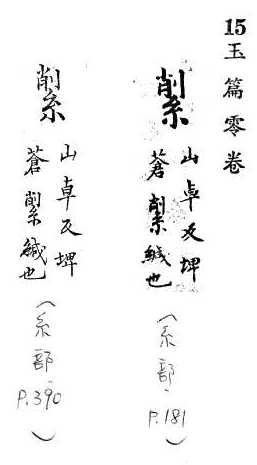 15玉篇零卷
山卓反埤
蒼緘也
(系部 P.181)
山卓反埤
蒼緘也
(系部 P.390)